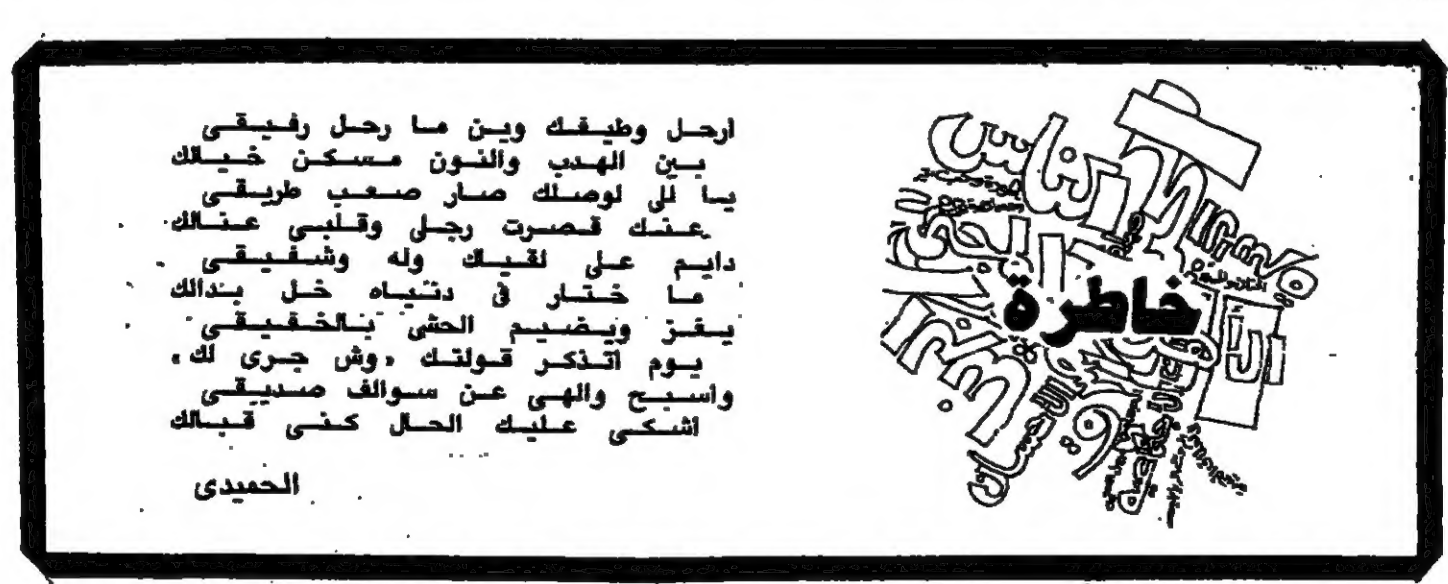 خاطرة
ارحل وطيفك وين ما رحل رفيقى
بين الهدب والنون مسكن خيالك
يا للى لوصلك صار صعب طريقى
عنك قصرت رجلى وقلبى عنالك
دايم على لقياك وله وشفيقى
ما ختار فى دنياه خل بدالك
يفز ويضيم الحشى بالخفيقى
يوم اتذكر قولتك «وش جرى لك»
واسبح والهى عن سوالف صديقى
اشكى عليك الحال كنى قبالك
الحميدى